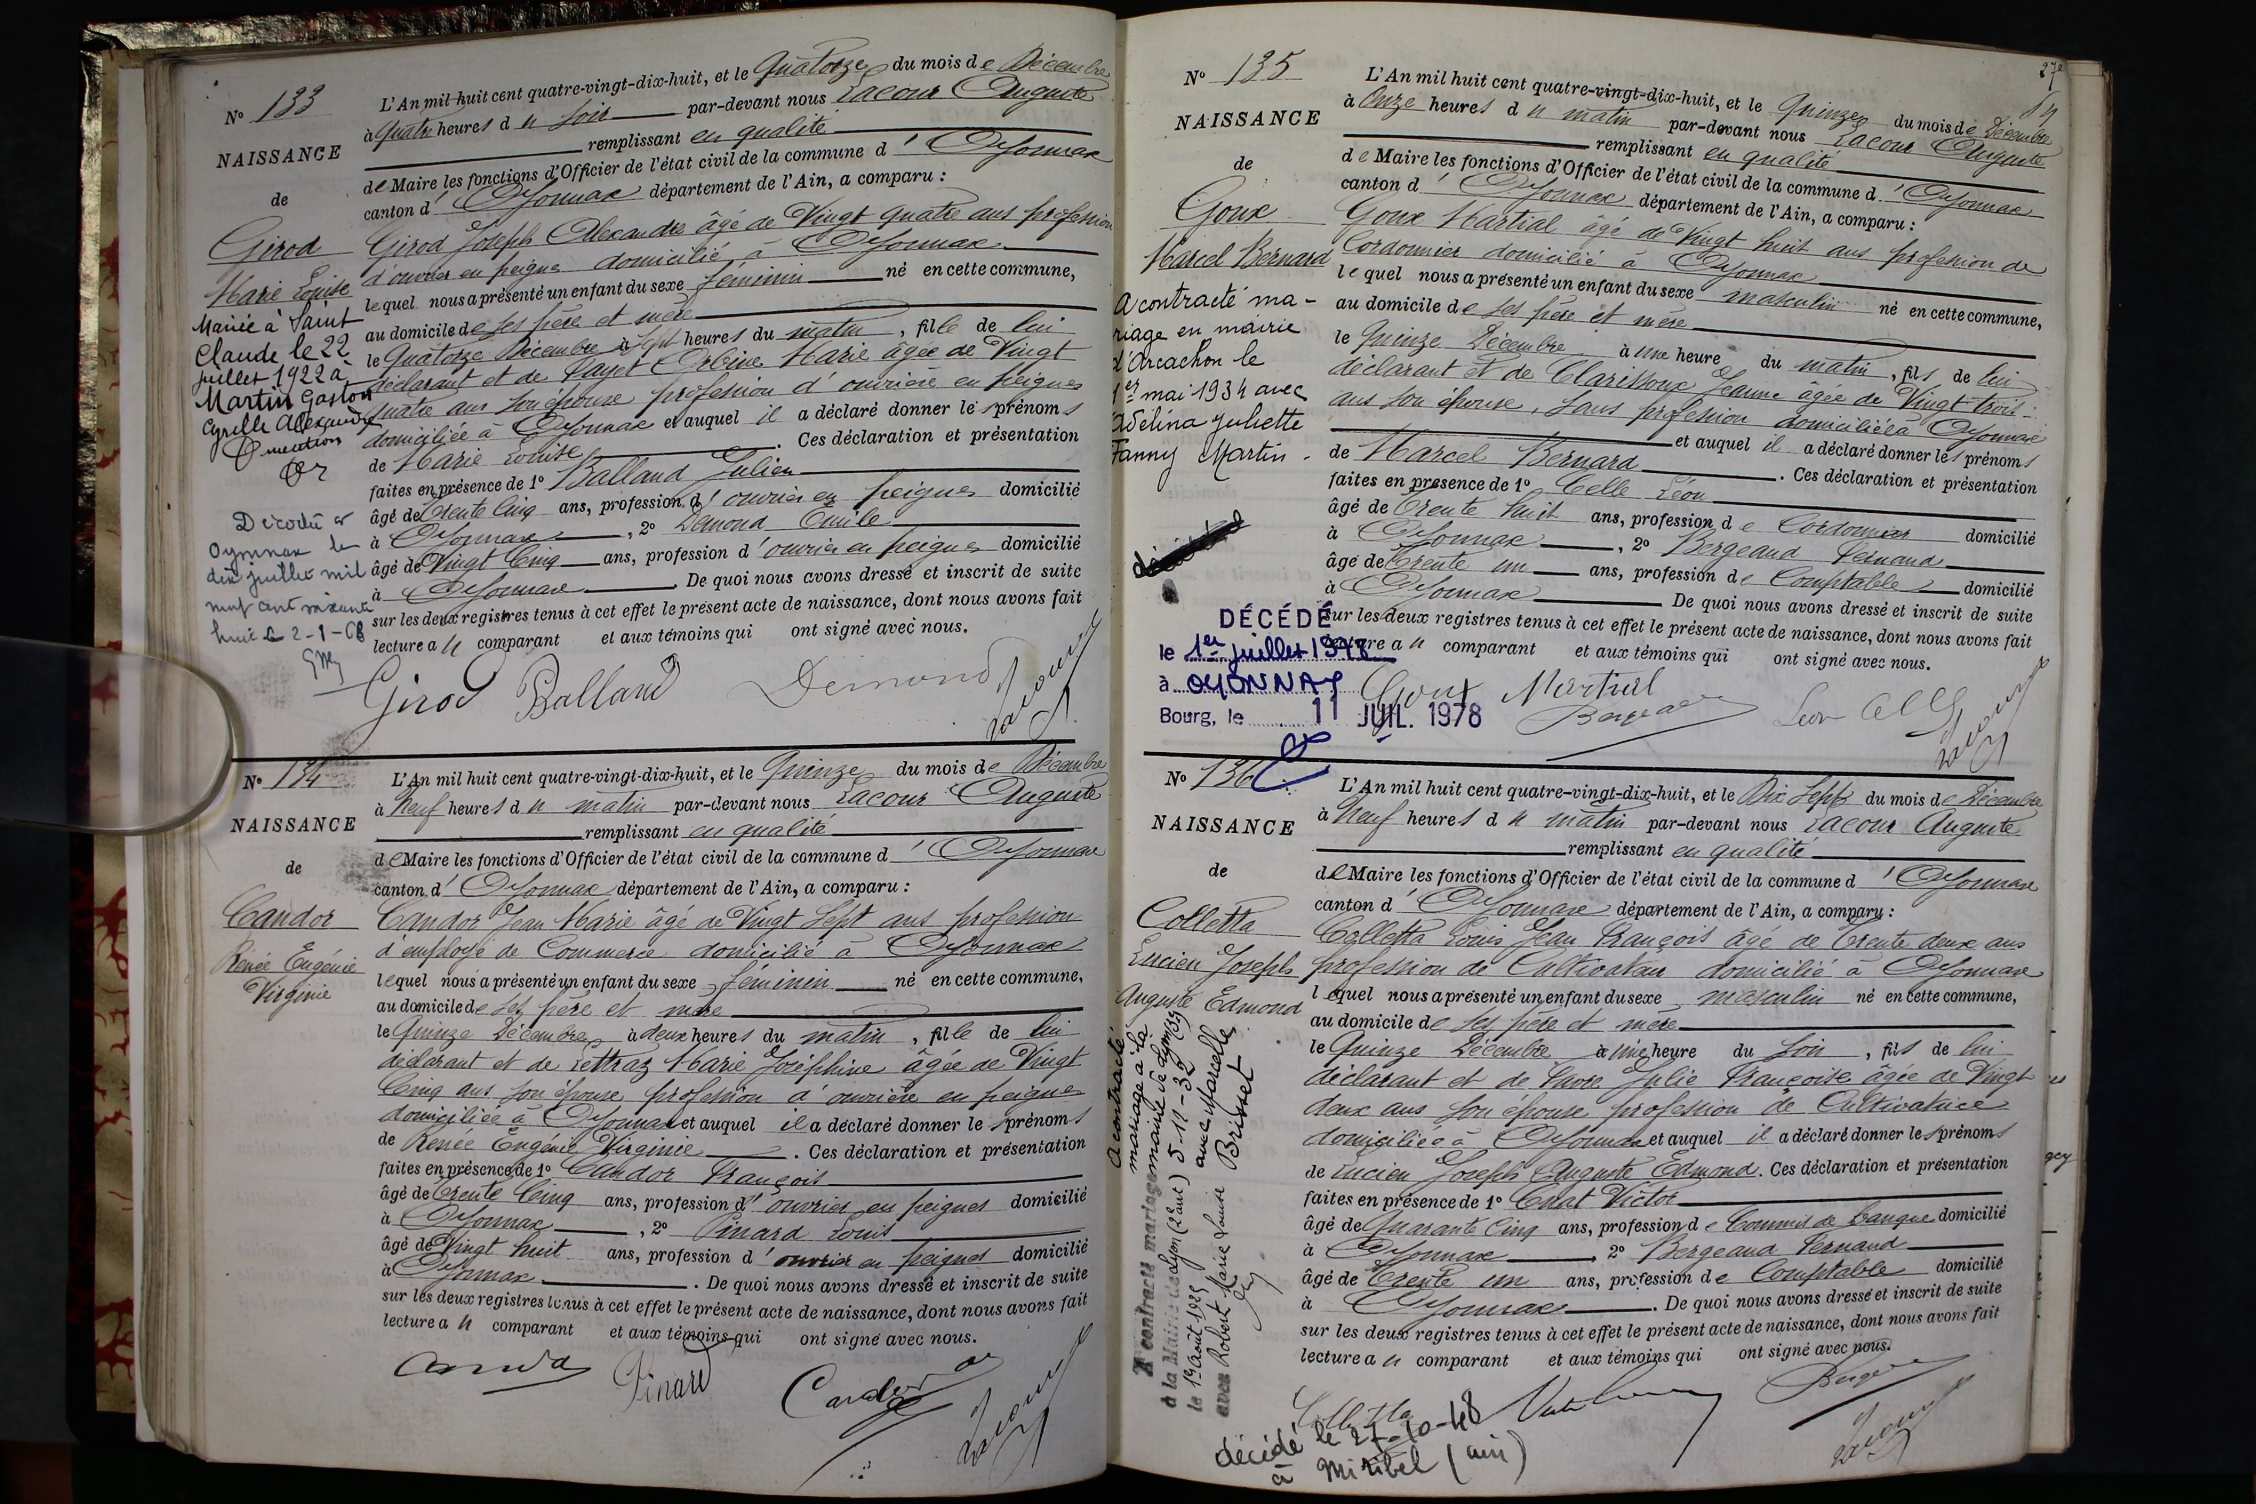 N° 133
NAISSANCE
de
Girod
Marie Louise
Mariée à Saint
Claude le 22
juillet 1922 à
Martin Gaston
Cyrille Alexandre
Décédée à
Oyonnax le
dix juillet mil
neuf cent soixante
huit 2-1-68
L'An mil huit cent quatre-vingt-dix-huit, et le Quatorze du mois de Décembre
à quatre heures du soir par-devant nous Lacour Auguste
remplissant en qualité
de Maire les fonctions d'Officier de l'état civil de la commune d'Oyonnax
canton d'Oyonnax département de l'Ain, a comparu :
Girod Joseph Alexandre âgé de Vingt quatre ans profession
d'ouvrier en peignes domicilié à Oyonnax
lequel nous a présenté un enfant du sexe féminin né en cette commune,
au domicile de ses père et mère
le Quatorze Décembre à sept heures du matin, fille de lui
déclarant et de Payet Marie âgée de Vingt
quatre ans son épouse profession d'ouvrière en peignes
domiciliée à Oyonnax et auquel il a déclaré donner les prénoms
de Marie Louise . Ces déclaration et présentation
faites en présence de 1° Balland Julien
âgé de Trente Cinq ans, profession d'ouvrier en peignes domicilié
à Oyonnax , 2° Demond Émile
âgé de Vingt Cinq ans, profession d'ouvrier en peignes domicilié
à Oyonnax . De quoi nous avons dressé et inscrit de suite
sur les deux registres tenus à cet effet le présent acte de naissance, dont nous avons fait
lecture au comparant et aux témoins qui ont signé avec nous.
Girod Balland Demond Lacour
N° 134
NAISSANCE
de
Candor
Renée Eugénie
Virginie
L'An mil huit cent quatre-vingt-dix-huit, et le Quinze du mois de Décembre
à Neuf heures du matin par-devant nous Lacour Auguste
remplissant en qualité
de Maire les fonctions d'Officier de l'état civil de la commune d'Oyonnax
canton d'Oyonnax département de l'Ain, a comparu :
Candor Jean Marie âgé de Vingt Sept ans profession
d'employé de Commerce domicilié à Oyonnax
lequel nous a présenté un enfant du sexe féminin né en cette commune,
au domicile de ses père et mère
le Quinze Décembre à deux heures du matin, fille de lui
déclarant et de Lettraz Marie Joséphine âgée de Vingt
Cinq ans son épouse profession d'ouvrière en peignes
domiciliée à Oyonnax et auquel il a déclaré donner les prénoms
de Renée Eugénie Virginie . Ces déclaration et présentation
faites en présence de 1° Candor François
âgé de Trente Cinq ans, profession d'ouvrier en peignes domicilié
à Oyonnax , 2° Pinard Louis
âgé de Vingt huit ans, profession d'ouvrier en peignes domicilié
à Oyonnax . De quoi nous avons dressé et inscrit de suite
sur les deux registres tenus à cet effet le présent acte de naissance, dont nous avons fait
lecture au comparant et aux témoins qui ont signé avec nous.
Candor Pinard Candor Lacour
27e
N° 135
NAISSANCE
de
Goux
Marcel Bernard
A contracté ma-
riage en mairie
d'Arcachon le
1er mai 1934 avec
Adélina Juliette
Fanny Martin.
DÉCÉDÉ
le 1er juillet 1978
à OYONNAX
Bourg, le 11 JUIL. 1978
L'An mil huit cent quatre-vingt-dix-huit, et le Quinze du mois de Décembre
à Onze heures du matin par-devant nous Lacour Auguste
remplissant en qualité
de Maire les fonctions d'Officier de l'état civil de la commune d'Oyonnax
canton d'Oyonnax département de l'Ain, a comparu :
Goux Martial âgé de Vingt huit ans profession de
Cordonnier domicilié à Oyonnax
lequel nous a présenté un enfant du sexe masculin né en cette commune,
au domicile de ses père et mère
le Quinze Décembre à une heure du matin, fils de lui
déclarant et de Clarissoux Jeanne âgée de Vingt trois
ans son épouse, sans profession domiciliée à Oyonnax
et auquel il a déclaré donner les prénoms
de Marcel Bernard . Ces déclaration et présentation
faites en présence de 1° Celle Léon
âgé de Trente huit ans, profession de Cordonnier domicilié
à Oyonnax , 2° Bergeaud Fernand
âgé de Trente un ans, profession de Comptable domicilié
à Oyonnax De quoi nous avons dressé et inscrit de suite
sur les deux registres tenus à cet effet le présent acte de naissance, dont nous avons fait
lecture au comparant et aux témoins qui ont signé avec nous.
Goux Martial Léon Celle Lacour
N° 136
NAISSANCE
de
Colletta
Lucien Joseph
Auguste Edmond
A contracté
mariage à la
mairie de Lyon (3e)
5-12-32
avec Marcelle
Brisset
A contracté mariage
à la Mairie de Lyon (2e arrt)
le 1er août 1925
avec Robert Marie Louise
décédé le 27-10-48
à Miribel (ain)
L'An mil huit cent quatre-vingt-dix-huit, et le Dix Sept du mois de Décembre
à Neuf heures du matin par-devant nous Lacour Auguste
remplissant en qualité
de Maire les fonctions d'Officier de l'état civil de la commune d'Oyonnax
canton d'Oyonnax département de l'Ain, a comparu :
Colletta Louis Jean François âgé de Trente deux ans
profession de Cultivateur domicilié à Oyonnax
lequel nous a présenté un enfant du sexe masculin né en cette commune,
au domicile de ses père et mère
le Quinze Décembre à une heure du soir, fils de lui
déclarant et de Julie Françoise âgée de Vingt
deux ans son épouse profession de Cultivatrice
domiciliée à Oyonnax et auquel il a déclaré donner les prénoms
de Lucien Joseph Auguste Edmond. Ces déclaration et présentation
faites en présence de 1° Victor
âgé de Quarante Cinq ans, profession de Commis de banque domicilié
à Oyonnax , 2° Bergeaud Fernand
âgé de Trente un ans, profession de Comptable domicilié
à Oyonnax . De quoi nous avons dressé et inscrit de suite
sur les deux registres tenus à cet effet le présent acte de naissance, dont nous avons fait
lecture au comparant et aux témoins qui ont signé avec nous.
Colletta Lacour